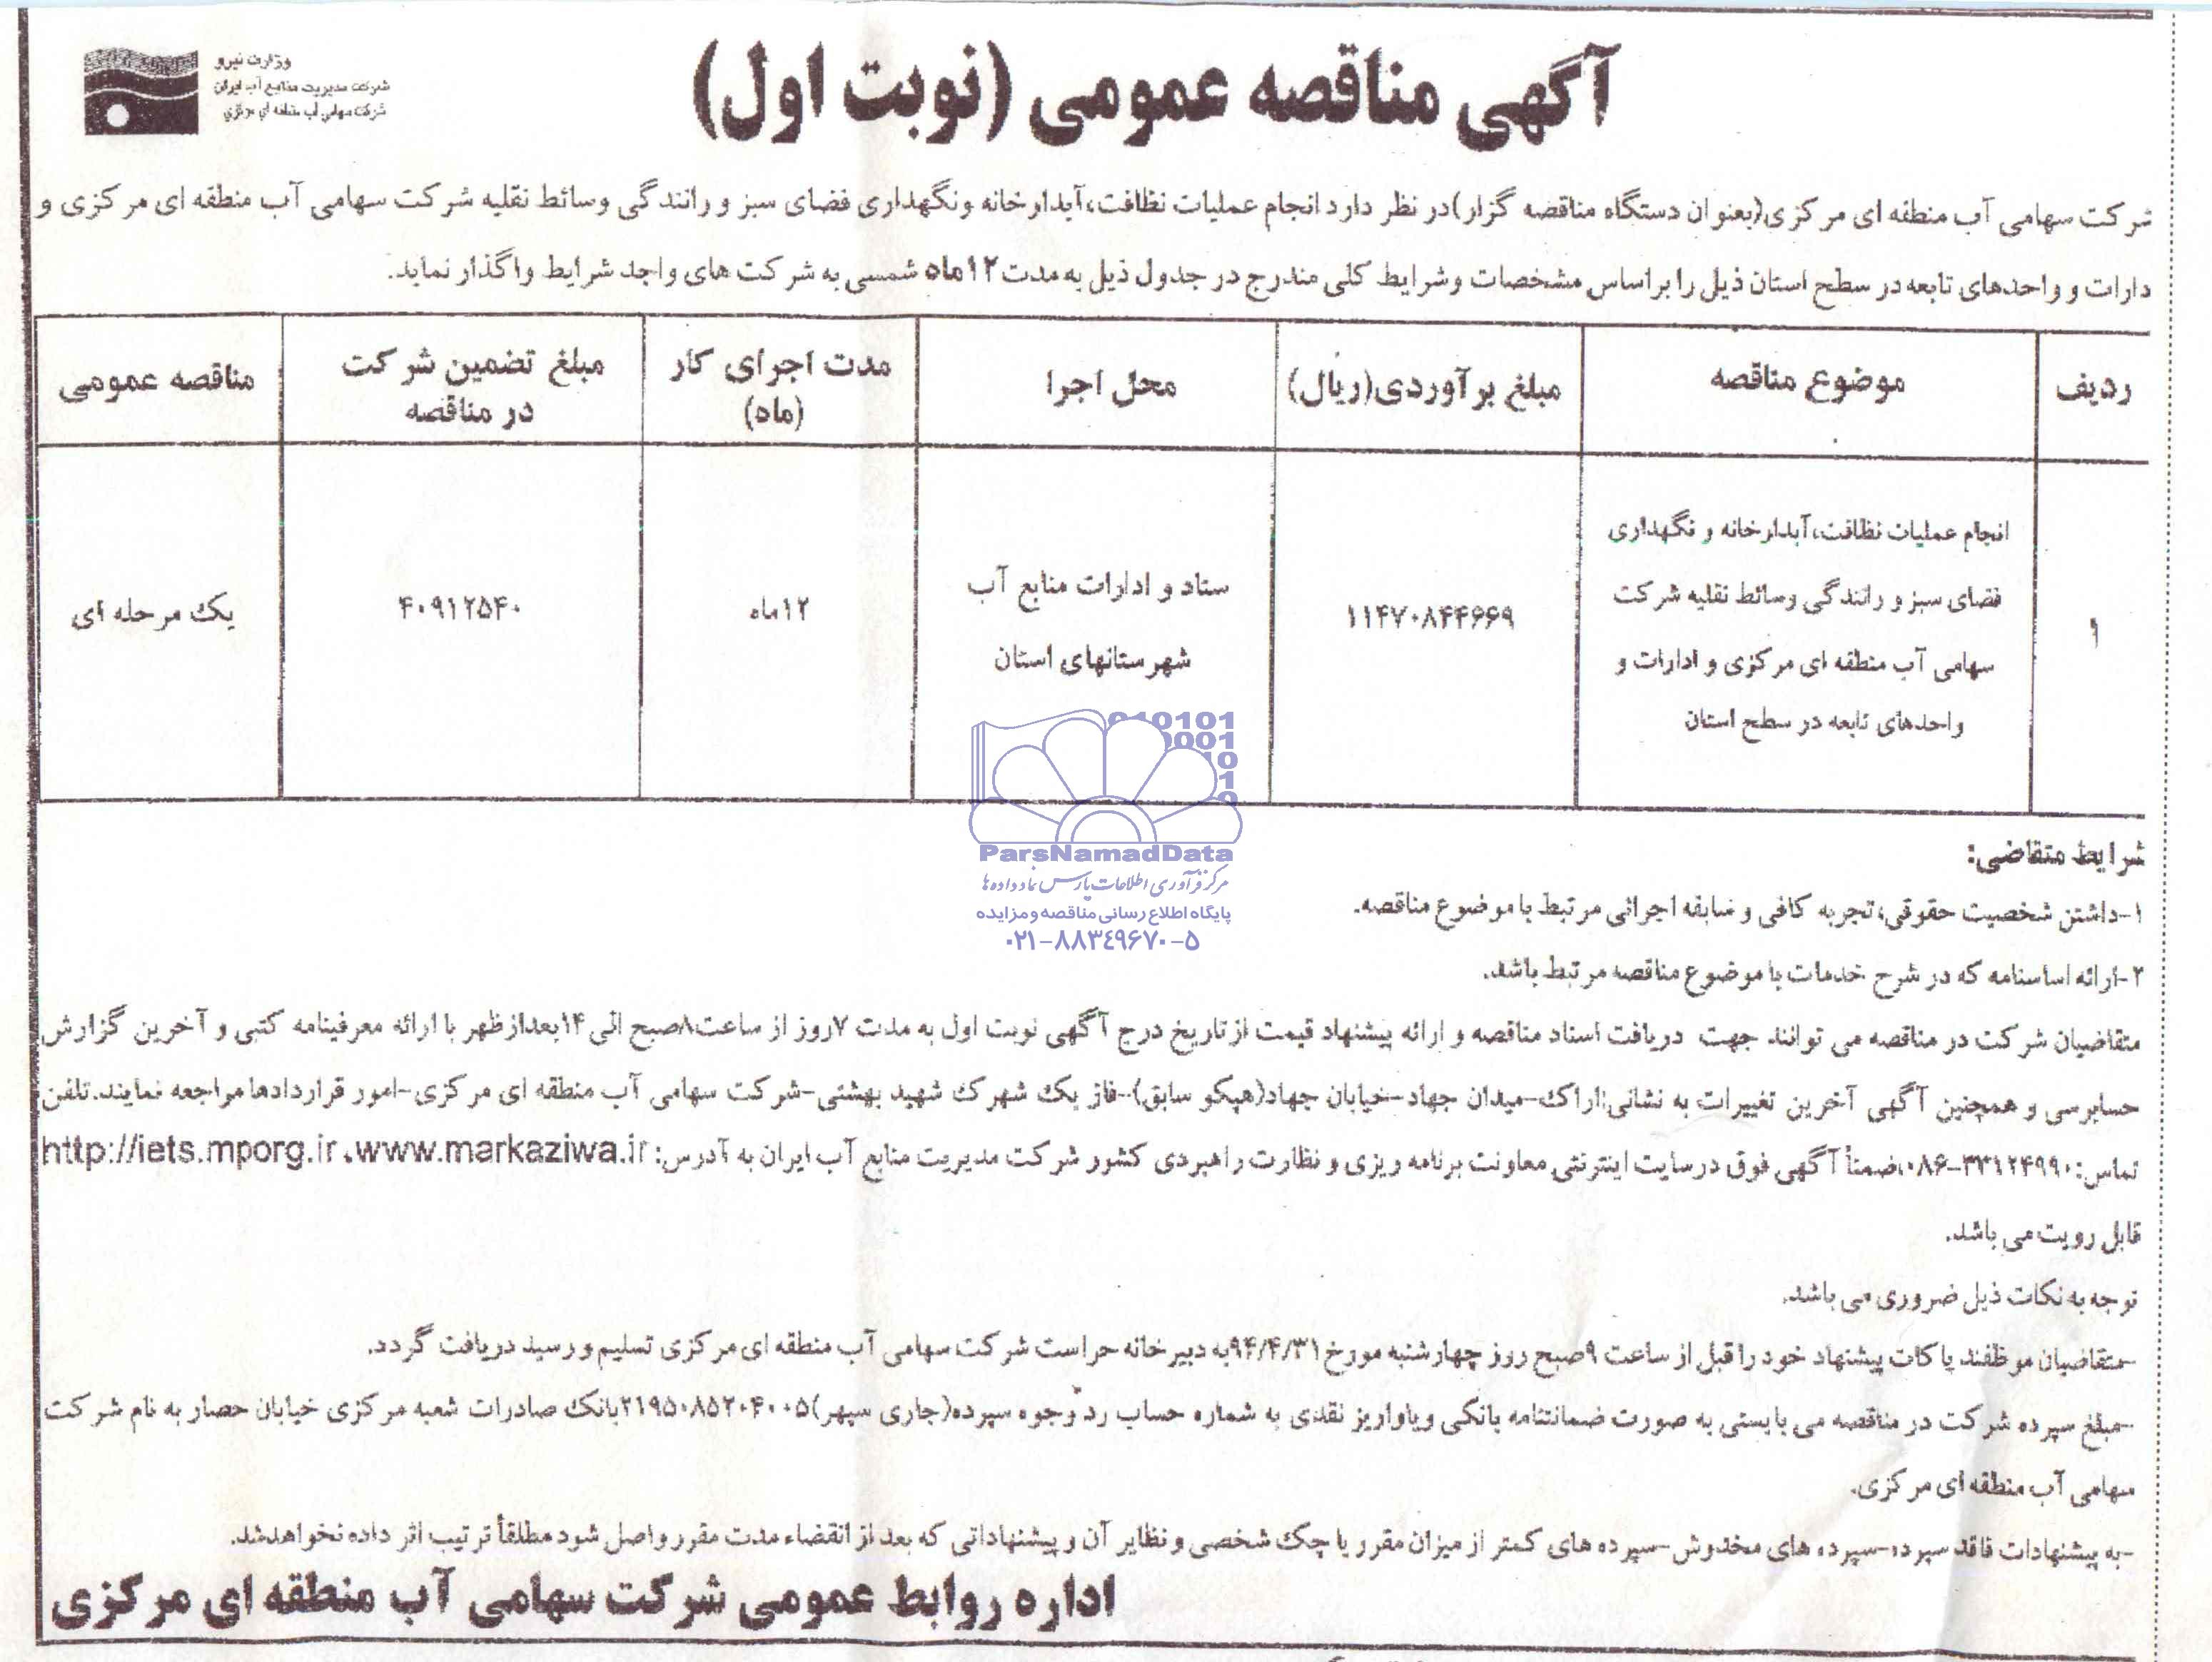 وزارت نیرو
شرکت مدیریت منابع آب ایران
شرکت سهامی آب منطقه ای مرکزی
آگهی مناقصه عمومی (نوبت اول)
شرکت سهامی آب منطقه ای مرکزی(بعنوان دستگاه مناقصه گزار)در نظر دارد انجام عملیات نظافت،آبدارخانه ونگهداری فضای سبز و رانندگی وسائط نقلیه شرکت سهامی آب منطقه ای مرکزی و
دارات و واحدهای تابعه در سطح استان ذیل را براساس مشخصات وشرایط کلی مندرج در جدول ذیل به مدت ۱۲ماه شمسی به شرکت های واجد شرایط واگذار نماید.
ردیف
موضوع مناقصه
مبلغ برآوردی(ریال)
محل اجرا
مدت اجرای کار
(ماه)
مبلغ تضمین شرکت
در مناقصه
مناقصه عمومی
۱
انجام عملیات نظافت،آبدارخانه و نگهداری
فضای سبز و رانندگی وسائط نقلیه شرکت
سهامی آب منطقه ای مرکزی و ادارات و
واحدهای تابعه در سطح استان
۱۱۴۷۰۸۴۴۶۶۹
ستاد و ادارات منابع آب
شهرستانهای استان
۱۲ماه
۴۰۹۱۲۵۴۰
یک مرحله ای
ParsNamadData
مرکز فرآوری اطلاعات پارس نماد داده ها
پایگاه اطلاع رسانی مناقصه و مزایده
۰۲۱-۸۸۳۴۹۶۷۰-۵
شرایط متقاضی:
۱-داشتن شخصیت حقوقی،تجربه کافی و سابقه اجرائی مرتبط با موضوع مناقصه.
۲-ارائه اساسنامه که در شرح خدمات با موضوع مناقصه مرتبط باشد.
متقاضیان شرکت در مناقصه می توانند جهت دریافت اسناد مناقصه و ارائه پیشنهاد قیمت از تاریخ درج آگهی نوبت اول به مدت ۷روز از ساعت۸صبح الی ۱۴بعدازظهر با ارائه معرفینامه کتبی و آخرین گزارش
حسابرسی و همچنین آگهی آخرین تغییرات به نشانی:اراک-میدان جهاد-خیابان جهاد(هپکو سابق)-فاز یک شهرک شهید بهشتی-شرکت سهامی آب منطقه ای مرکزی-امور قراردادها مراجعه نمایند.تلفن
تماس:۳۳۱۲۴۹۹۰-۰۸۶،ضمناً آگهی فوق درسایت اینترنتی معاونت برنامه ریزی و نظارت راهبردی کشور شرکت مدیریت منابع آب ایران به آدرس: http://iets.mporg.ir ،www.markaziwa.ir
قابل رویت می باشد.
توجه به نکات ذیل ضروری می باشد.
-متقاضیان موظفند پاکات پیشنهاد خود را قبل از ساعت ۹صبح روز چهارشنبه مورخ ۹۴/۴/۳۱به دبیرخانه حراست شرکت سهامی آب منطقه ای مرکزی تسلیم و رسید دریافت گردد.
-مبلغ سپرده شرکت در مناقصه می بایستی به صورت ضمانتنامه بانکی ویاواریز نقدی به شماره حساب رد وجوه سپرده(جاری سپهر)۲۱۹۵۰۸۵۲۰۴۰۰۵بانک صادرات شعبه مرکزی خیابان حصار به نام شرکت
سهامی آب منطقه ای مرکزی.
-به پیشنهادات فاقد سپرده-سپرده های مخدوش-سپرده های کمتر از میزان مقرر یا چک شخصی ونظایر آن و پیشنهاداتی که بعد از انقضاء مدت مقرر واصل شود مطلقاً ترتیب اثر داده نخواهدشد.
اداره روابط عمومی شرکت سهامی آب منطقه ای مرکزی